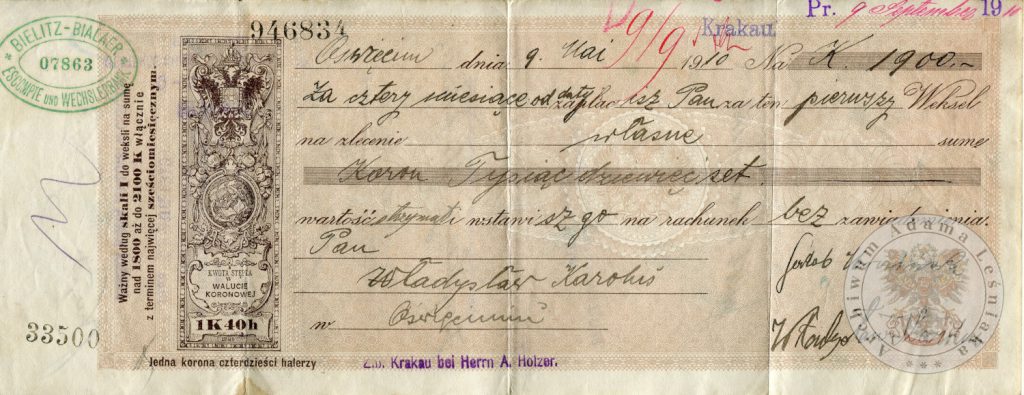 BIELITZ-BIALAER
07863
ESCOMPTE und WECHSLERBANK
946834
Krakau
Pr. 9 September 1910
9/9
Oświęcim dnia 9. Mai 1910 Na K. 1900.-
Za cztery miesiące od daty zapłacisz Pan za ten pierwszy Weksel
na zlecenie własne sumę
Koron Tysiąc dziewięćset.
wartość otrzymał i wstawisz go na rachunek bez zawiadomienia.
Pan
Władysław
w Oświęcimiu
Jakób
Ważny według skali I do weksli na sumę
nad 1800 aż do 2100 K włącznie
z terminem najwięcej sześciomiesięcznym.
KWOTA STĘPLA
W
WALUCIE
KORONOWEJ
1K40h
33500
Jedna korona czterdzieści halerzy
Z.b. Krakau bei Herrn A. Holzer.
Archiwum Adama Leśniaka